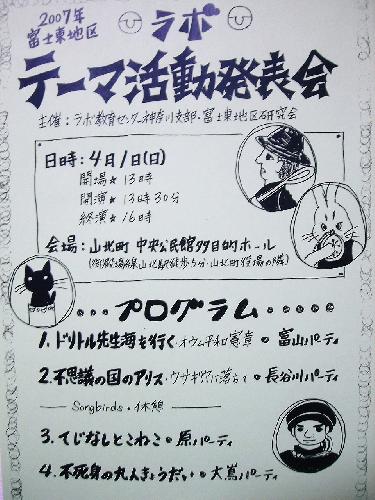 2007年
富士東地区
ラボ
テーマ活動発表会
主催：ラボ教育センター神奈川支部・富士東地区研究会
日時：4月1日(日)
開場★13時
開演★13時30分
終演★16時
会場：山北町 中央公民館多目的ホール
(御殿場線山北駅徒歩5分・山北町役場の隣)
・・・プログラム・・・・・
1. ドリトル先生海を行く・オウム平和憲章●富山パーティ
2. 不思議の国のアリス・ウサギ穴に落ちて●長谷川パーティ
Songbirds・休憩
3. てじなしとこねこ●原パーティ
4. 不死身の九人きょうだい●大嶌パーティ